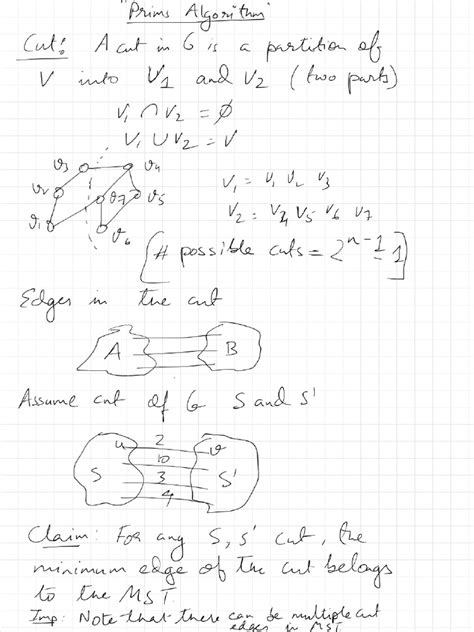 "Prims Algorithm"
Cut: A cut in G is a partition of
V into V1 and V2 (two parts)
V1 ∩ V2 = ∅
V1 ∪ V2 = V
v3 v4
v2 v7 v5
v1 v6
V1 = v1 v2 v3
V2 = v4 v5 v6 v7
[# possible cuts = 2^n-1 - 1]
Edges in the cut
A B
Assume cut of G S and S'
u 2 v
10
S 3 S'
4
Claim: For any S, S' cut, the
minimum edge of the cut belongs
to the MST
Imp: Note that there can be multiple cut
edges in MST